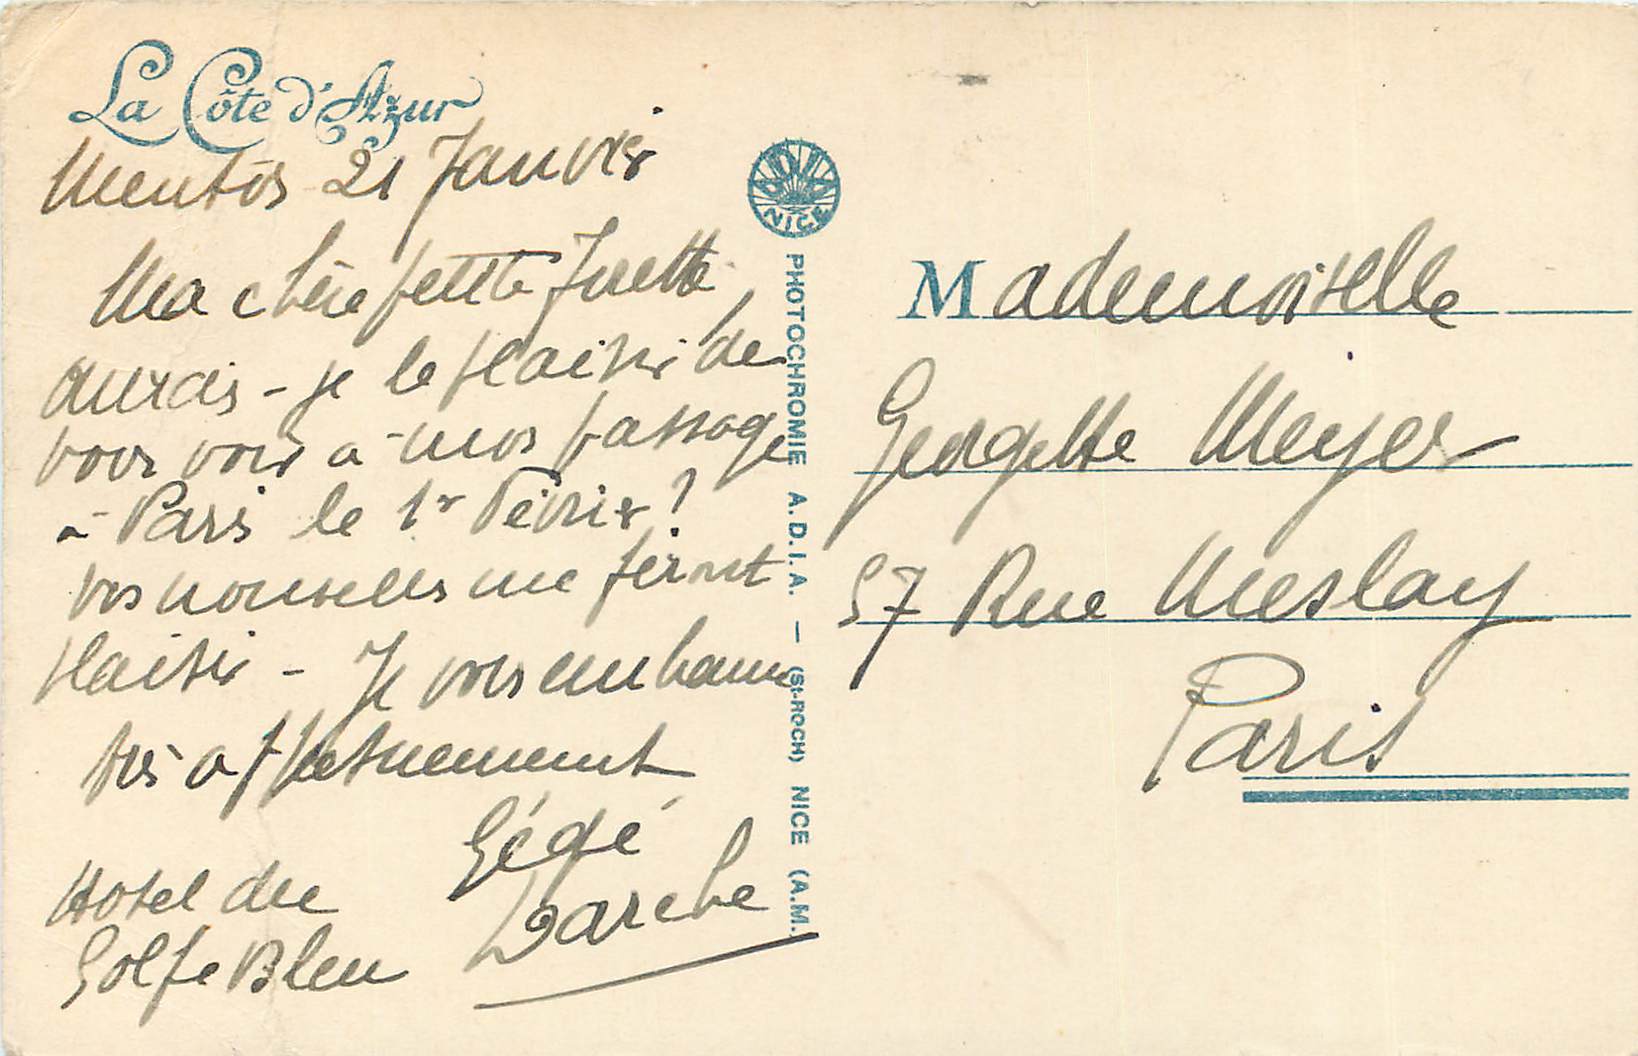 La Côte d'Azur
Menton 21 Janvier
Ma chère petite
aurais-je le plaisir de
vous voir à mon passage
à Paris le 1er Février ?
Vos nouvelles me feront
plaisir - Je vous embrasse
très affectueusement
Gégé
Darche
Hotel du
Golfe Bleu
ADIA
NICE
PHOTOCHROMIE A.D.I.A. — (St-ROCH) NICE (A.M.)
Mademoiselle
Georgette Meyer
57 Rue Meslay
Paris